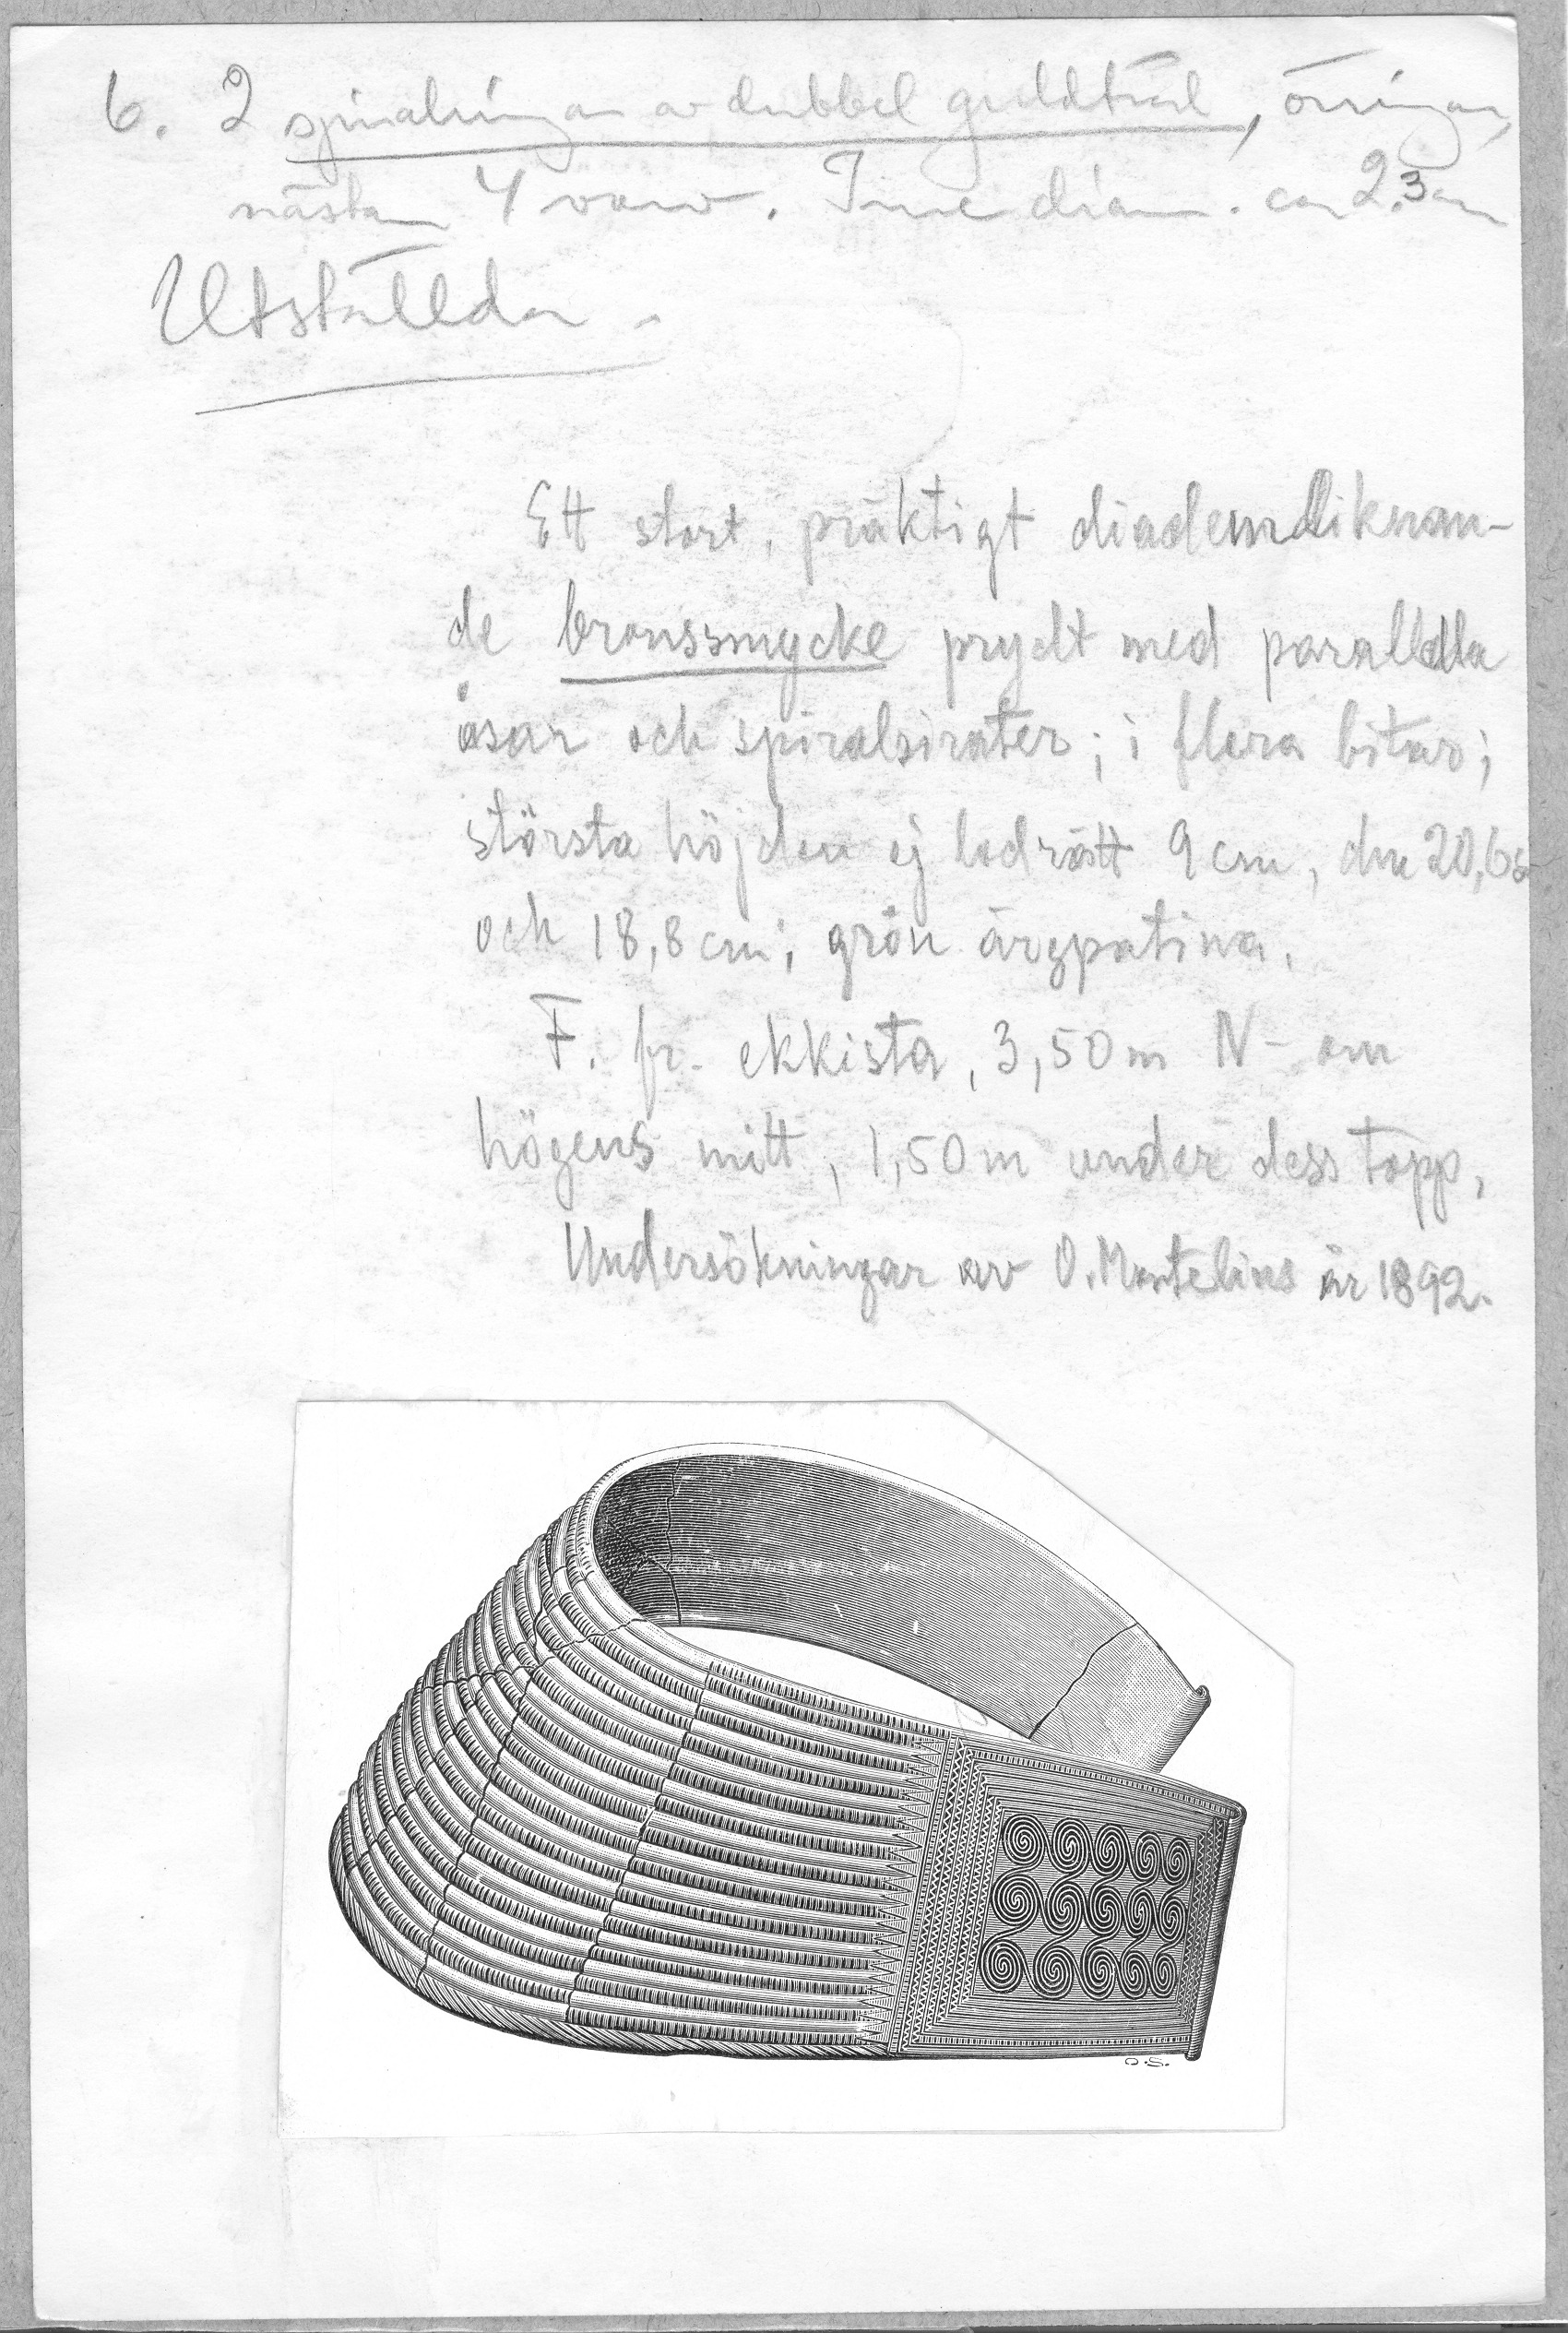 6. 2 spiralringar av dubbel guldtråd, örringar,
nästan 4 varv. Inre diam. ca 2.3 cm
Utställda.
Ett stort, präktigt diademliknan-
de bronssmycke prydt med parallella
åsar och spiralsirater; i flera bitar;
största höjden ej lodrätt 9 cm, dm 20,6
och 18,8 cm; grön ärgpatina.
F. fr. ekkista, 3,50 m N- om
högens mitt, 1,50 m under dess topp,
Undersökningar av O. Montelius år 1892.
O.S.